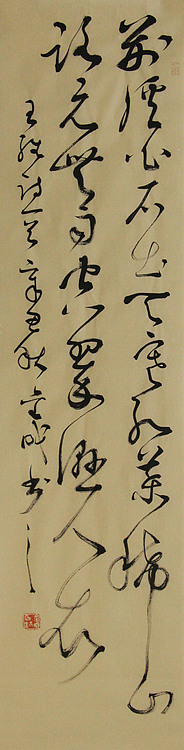 荊溪白石出天寒紅葉稀山
路元無雨空翠濕人衣
王維詩一首辛丑秋書